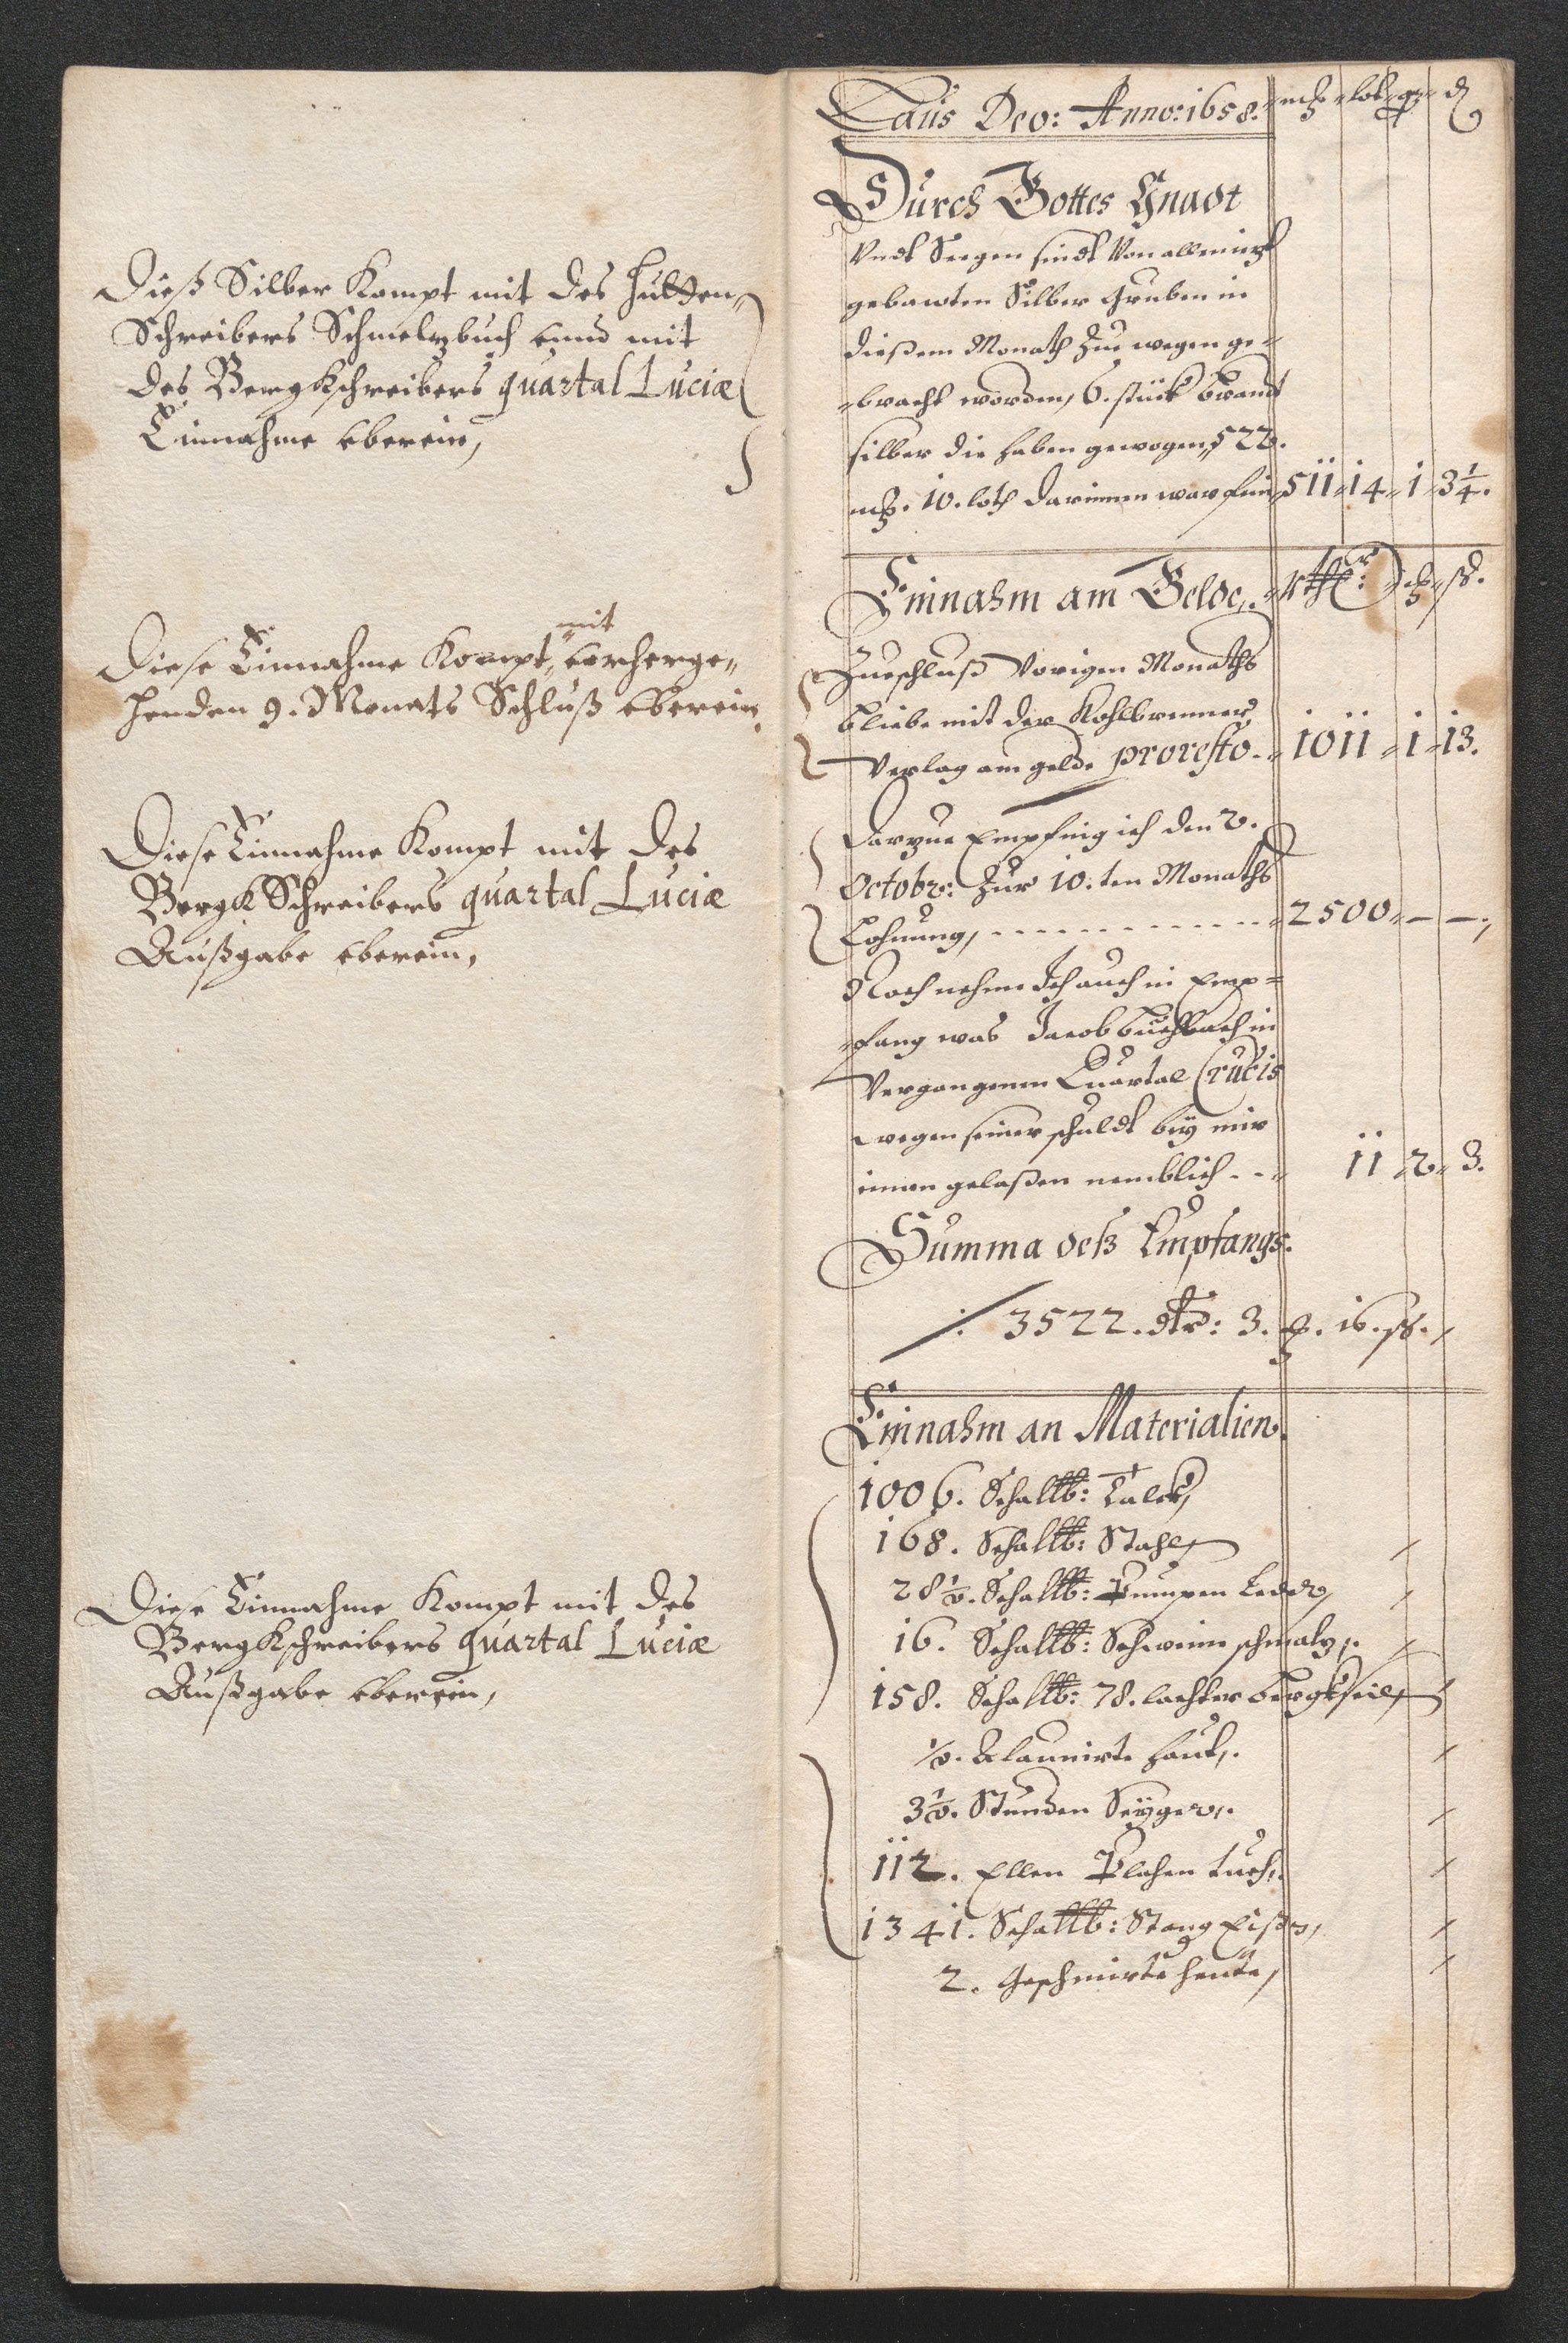 Dieß Silber Kompt mit des hütten„
Schreibers Schmelzbuch vnnd mit
des Bergkschreibers quartal Luciæ
Einnahme vberein,
mit
Diese Einnahme Kompt, vorherge„
henden 9. Monats Schluß vberein,
Diese Einnahme Kompt mit des
Bergk Schreibers quartal Luciæ
Außgabe vberein,
Diese Einnahme Kompt mit des
Bergkschreibers quartal Luciæ
Außgabe vberein,
Laus Deo: Anno: 1658. mk lot q d
Durch Gottes Gnadt
Vndt Seegen sindt Von allen
gebawten Silber Gruben in
dießem Monath Zue wegen ge-
bracht worden, 6. stück brandt
silber die haben gewogen, 522.
mk. 10. loth darinnen war fein 511 14 1 3 1/4.
Einnahm am Gelde, Rthlr: ß.
Zueschluß Vorigen Monaths
bliebe mit der Kohlbrenner
Verlag am gelde pro resto. 1011 1 13.
Darzue Empfing ich den 2.
Octobr: Zur 10.ten Monaths
Lohnung, 2500 — —
Noch nehme Ich auch in Emp=
fang was Jacob in
Vergangenen Quartal Crucis
wegen seiner schuldt bey mir
innen gelaßen nemblich 11 2 3.
Summa deß Empfangs.
/: 3522. dlr: 3. 16. ß.
Einnahm an Materialien.
1006. Schallb: Talck,
168. Schallb: Stahl,
28 1/2. Schallb: Pumpen Leder,
16. Schallb: Schweine schmalz,
158. Schallb: 78. lachter bergkseil,
1/2. Alaunirte haut,
3 1/2. Stunden Seyger,
112. Ellen Plahen tuch,
1341. Schallb: Stang Eißen,
2. Geschmirte heute,